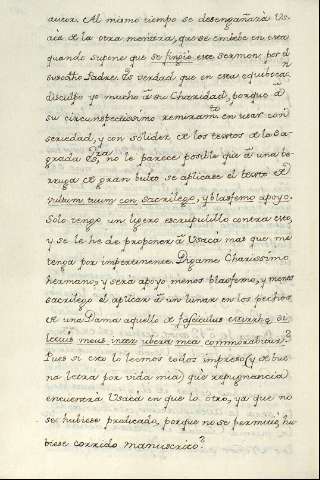 autor. Al mismo tiempo se desengañarà Us-
cià de la otra mentira, que se embebe en esta
quando supone que se fingio este sermon, por el
susodho Padre. Es verdad que en esta equivocacn
disculpo yo mucho â su Charidad, porque â
su circunspectissimo remiramto en usar con
seriedad, y con sólidez de los textos de la Sa-
grada Essra, no le parece posible que â una be-
rruga de gran bulto se aplicase el texto de
vultum tuum con sacrilego, y blasfemo apoyo.
Solo tengo un ligero escrupulillo contra esto,
y se le he de proponer â Usacà mas que me
tenga por impertinente. Digame Charissimo
hermano, y serà apoyo menos blasfemo, y menos
sacrilego el aplicar â un lunar en los pechos
de una Dama aquello de fasciculus mirrhæ di-
lectus meus inter ubera mea commorabitur?
Pues si esto lo leemos todos impreso (y de bue-
na letra por vida mia) què repugnancia
encuentra Usacà en que lo otro, ya que no
se hubiese predicado, porque no se permitiò, hu-
biese corrido manuscrito?